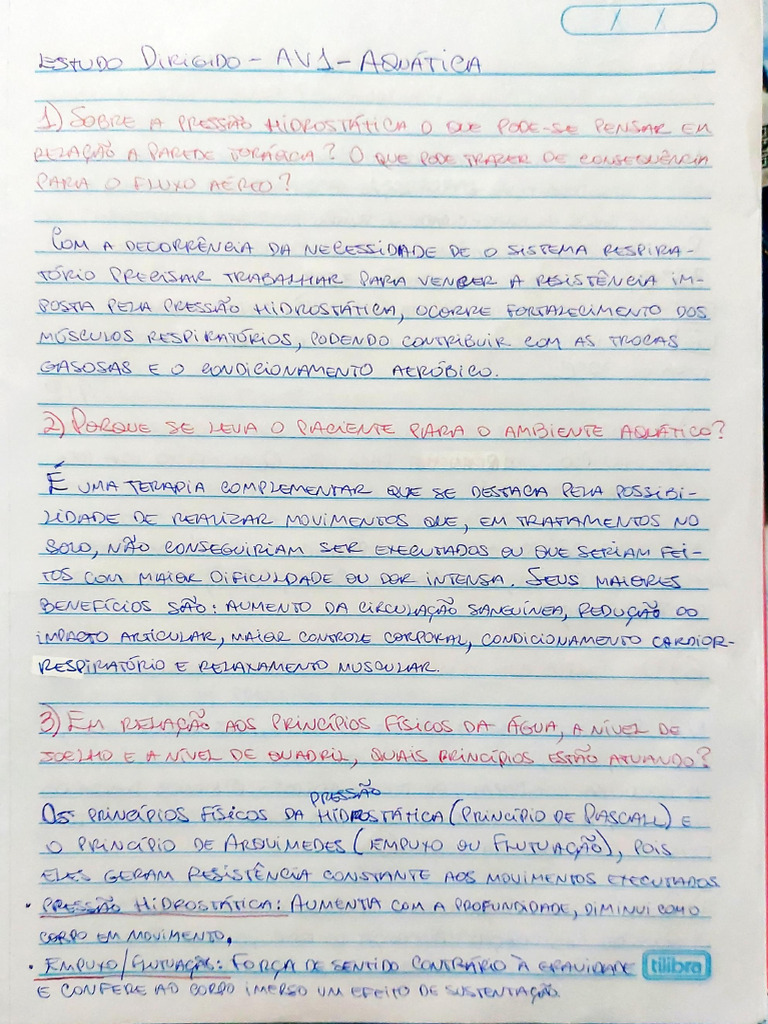 / /
ESTUDO DIRIGIDO - AV1 - AQUÁTICA
1) SOBRE A PRESSÃO HIDROSTÁTICA O QUE PODE-SE PENSAR EM
RELAÇÃO A PAREDE TORÁCICA? O QUE PODE TRAZER DE CONSEQUÊNCIA
PARA O FLUXO AÉREO?
COM A DECORRÊNCIA DA NECESSIDADE DE O SISTEMA RESPIRA-
TÓRIO PRECISAR TRABALHAR PARA VENCER A RESISTÊNCIA IM-
POSTA PELA PRESSÃO HIDROSTÁTICA, OCORRE FORTALECIMENTO DOS
MÚSCULOS RESPIRATÓRIOS, PODENDO CONTRIBUIR COM AS TROCAS
GASOSAS E O CONDICIONAMENTO AERÓBICO.
2) PORQUE SE LEVA O PACIENTE PARA O AMBIENTE AQUÁTICO?
É UMA TERAPIA COMPLEMENTAR QUE SE DESTACA PELA POSSIBI-
LIDADE DE REALIZAR MOVIMENTOS QUE, EM TRATAMENTOS NO
SOLO, NÃO CONSEGUIRIAM SER EXECUTADOS OU QUE SERIAM FEI-
TOS COM MAIOR DIFICULDADE OU DOR INTENSA. SEUS MAIORES
BENEFÍCIOS SÃO: AUMENTO DA CIRCULAÇÃO SANGUÍNEA, REDUÇÃO DO
IMPACTO ARTICULAR, MAIOR CONTROLE CORPORAL, CONDICIONAMENTO CARDIOR-
RESPIRATÓRIO E RELAXAMENTO MUSCULAR.
3) EM RELAÇÃO AOS PRINCÍPIOS FÍSICOS DA ÁGUA, A NÍVEL DE
JOELHO E A NÍVEL DE QUADRIL, QUAIS PRINCÍPIOS ESTÃO ATUANDO?
OS PRINCÍPIOS FÍSICOS DA PRESSÃO HIDROSTÁTICA (PRINCÍPIO DE PASCALL) E
O PRINCÍPIO DE ARQUIMEDES (EMPUXO OU FLUTUAÇÃO), POIS
ELES GERAM RESISTÊNCIA CONSTANTE AOS MOVIMENTOS EXECUTADOS
• PRESSÃO HIDROSTÁTICA: AUMENTA COM A PROFUNDIDADE, DIMINUI COM O
CORPO EM MOVIMENTO.
• EMPUXO/FLUTUAÇÃO: FORÇA DE SENTIDO CONTRÁRIO À GRAVIDADE tilibra
E CONFERE AO CORPO IMERSO UM EFEITO DE SUSTENTAÇÃO.